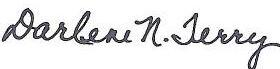 Darlene N. Terry